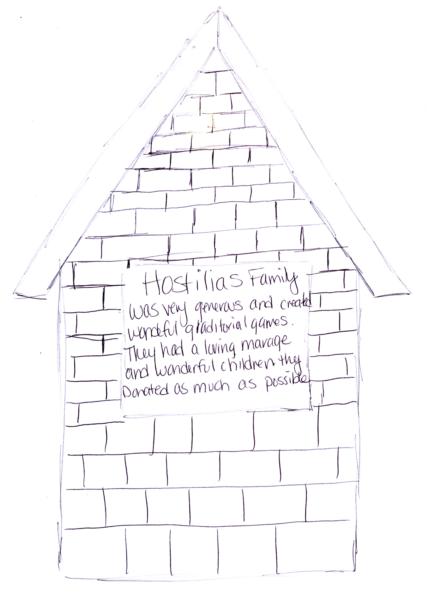 Hostilias Family
was very generous and created
wondeful gladitorial games.
They had a loving marage
and wonderful children thy
Donated as much as possible